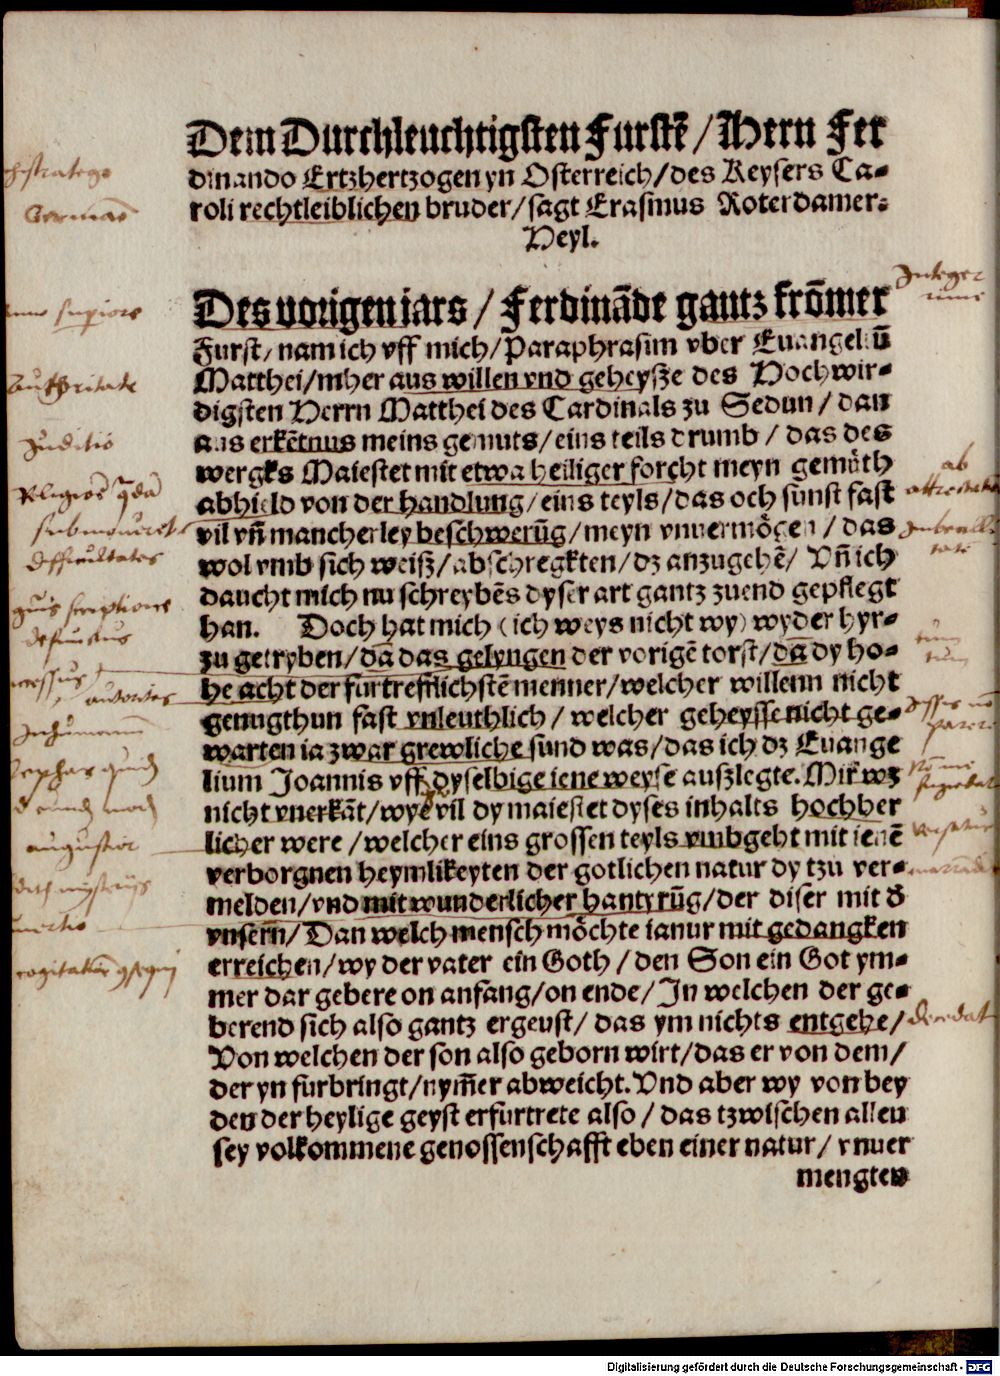 Dem Durchleuchtigsten Furstē / Hern Fer
dinando Ertzhertzogen yn Osterreich/des Keysers Ca⸗
roli rechtleiblichen bruder/sagt Erasmus Roterdamer⸗
Heyl.
Des vorigen iars / Ferdinãde gantz frõmer
Furst/nam ich vff mich/Paraphrasim vber Euangeliũ
Matthei/mher aus willen vnd geheysze des Hochwir⸗
digsten Herrn Matthei des Cardinals zu Sedun/dan
aus erkẽtnus meins gemuts/eins teils drumb / das des
wergks Maiestet mit etwa heiliger forcht meyn gemüth
abhield von der handlung/eins teyls/das och sunst fast
vil vñ mancherley beschwerũg/meyn vnuermögen / das
wol vmb sich weiß/abschregkten/dz anzugehẽ/ Vñ ich
daucht mich nu schreybẽs dyser art gantz zu end gepflegt
han. Doch hat mich (ich weys nicht wy) wyder hyr⸗
zu getryben/dã das gelyngen der vorigẽ torst/dã dy ho⸗
he acht der furtrefflichstẽ menner/welcher willenn nicht
genugthun fast vnleuthlich / welcher geheysse nicht ge⸗
warten ia zwar grewliche sund was/das ich dz Euange
lium Joannis vff dyselbige iene weyse auszlegte. Mir wz
nicht vnerkãt/wye vil dy maiestet dyses inhalts hochber
licher were /welcher eins grossen teyls vmbgeht mit ienẽ
verborgnen heymlikeyten der gotlichen natur dy tzu ver⸗
melden/vnd mit wunderlicher hantyrũg/der diser mit d̃
vnserñ/Dan welch mensch möchte ia nur mit gedangken
erreichen/wy der vater ein Goth /den Son ein Got ym⸗
mer dar gebere on anfang/on ende/In welchen der ge⸗
berend sich also gantz ergeust/ das ym nichts entgehe/
Von welchen der son also geborn wirt/das er von dem/
der yn furbringt/nym̃er abweicht. Vnd aber wy von bey
den der heylige geyst erfurtrete also / das tzwischen allen
sey volkommene genossenschafft eben einer natur/ vnuer
mengten
Integer
rime
authoritate
Juditio
difficultates
augustior
Digitalisierung gefördert durch die Deutsche Forschungsgemeinschaft - DFG